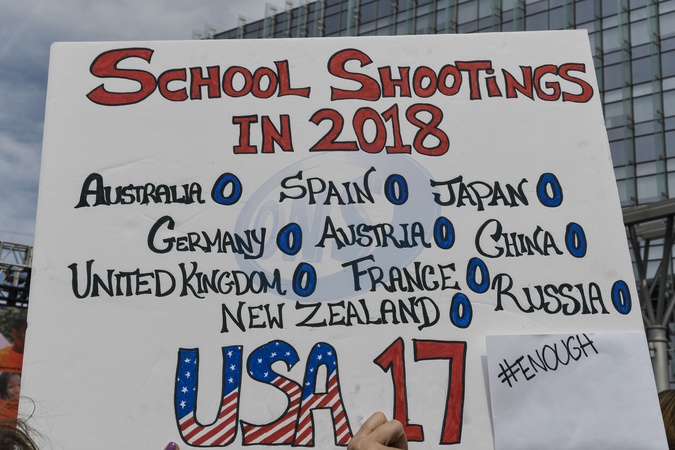 SCHOOL SHOOTINGS
IN 2018
AUSTRALIA 0 SPAIN 0 JAPAN 0
GERMANY 0 AUSTRIA 0 CHINA 0
UNITED KINGDOM 0 FRANCE 0 RUSSIA 0
NEW ZEALAND 0
USA 17
#ENOUGH